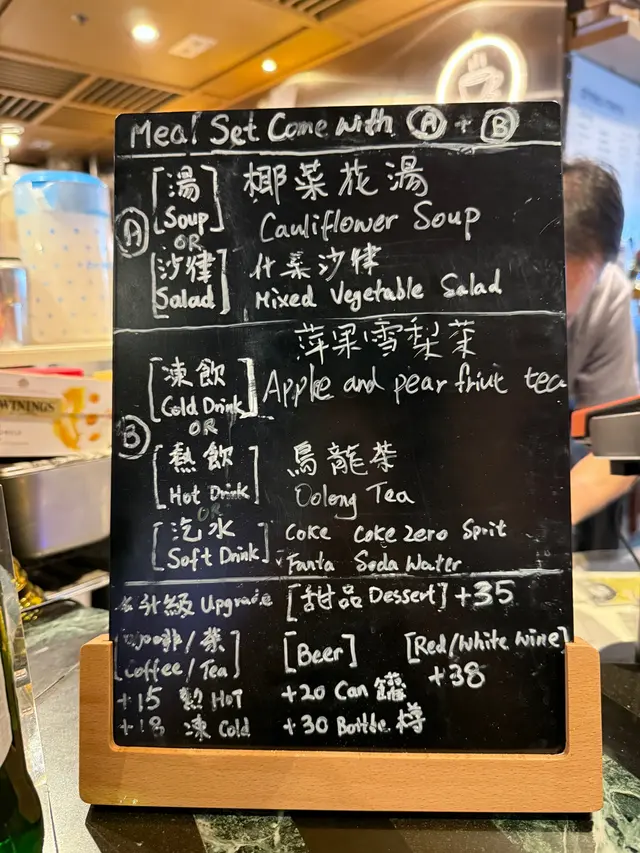 Meal Set Come with Ⓐ + Ⓑ
Ⓐ
[湯] 椰菜花湯
[Soup] Cauliflower Soup
OR
[沙律] 什菜沙律
[Salad] Mixed Vegetable Salad
Ⓑ
苹果雪梨茶
[凍飲]
[Cold Drink] Apple and pear friut tea
OR
[熱飲] 烏龍茶
[Hot Drink] Oolong Tea
OR
[汽水] Coke Coke Zero Sprit
[Soft Drink] Fanta Soda Water
升級 Upgrade [甜品 Dessert] +35
啡/茶] [Beer] [Red/White Wine]
[Coffee/Tea] +38
+15 熱 HOT +20 Can 罐
+18 凍 Cold +30 Bottle 樽
WININGS